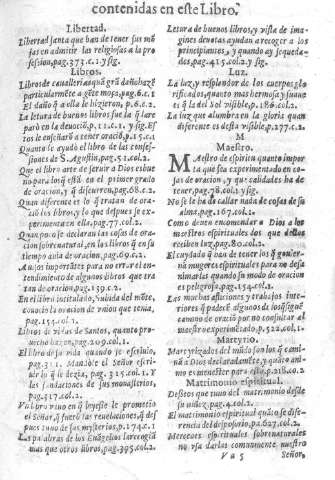 contenidas en este Libro.
Libertad.
Libertad santa que han de tener sus mō
jas en admitir las religiosas a la pro
fession, pag. 373. c. 1. y sig.
Libros.
Libros de cavallerias quā grā daño haze
particularmēte a gēte moça, pag. 6. c. 2
El daño q̄ a ella le hizieron, p. 6. c. 2.
La letura de buenos libros fue la q̄ la re
parò en la devociō, p. 11. c. 1. y sig. Es
tos le enseñarō a tener oraciō, p. 15. c. 1
Quanto le ayudò el libro de las confes-
siones de S. Agustin, pag. 51. col. 2.
Que el libro arte de servir a Dios es bue
no para los q̄ està en el primer grato
de oracion, y q̄ discurren, pag. 68. c. 2.
Quan diferente es lo q̄ tratan de ora-
ciō los libros, y lo que despues se ex-
perimenta en ella, pag. 77. col. 2.
Quan poco declaran las cosas de ora-
cion sobrenatural, en los libros q̄ en su
tiempo avia de oracion, pag. 69. c. 2.
tendimiento de algunos libros que tra
tan de oracion, pag. 139. c. 2.
En el libro intitulado, Subida del mōte,
conocio la oracion de union que tenia,
pag. 154. col. 1.
Libros de vidas de Santos, quanto pro-
mueven, pag. 209. col. 1.
El libro de su vida quando se escrivio,
pag. 311. Mandòle el Señor escri-
vir lo q̄ le dezia, pag. 315. col. 1. Y
las fundaciones de sus monasterios,
pag. 317. col. 1.
Un libro vivo en q̄ leyesse le prometio
el Señor, q̄ fuerō las revelaciones, q̄ des
pues tuvo de sus mysterios, p. 174. c. 1
Las palabras de los Euāgelios la recogiā
mas que otros libros, pag. 395. col. 2.
Letura de buenos libros, y vista de ima-
gines devotas ayudan a recoger a los
principiantes, y quando ay sequeda-
des, pag. 415. col. 2. y sig.
Luz.
La luz, y resplendor de los cuerpos glo
rificados, quanto mas hermosa y suave
es q̄ la del Sol visible, p. 186. col. 1.
La luz que alumbra en la gloria quan
diferente es desta visible, p. 277. c. 2.
M
Maestro.
Maestro de espiritu quanto impor
ta que sea experimentado en co-
sas de oracion, y que calidades ha de
tener, pag. 78. col. 1. y sig.
No se le ha de callar nada de cosas de su
alma, pag. 167. col. 1.
Como deven encomendar a Dios a los
maestros espirituales los que dellos
reciben luz, pag. 80. col. 2.
El cuydado q̄ han de tener los q̄ govier-
nā mugeres espirituales para no desa
nimarlas quando su modo de oracion
es peligrosa, pag. 154. col. 1.
Las muchas aflicciones y trabajos inte-
riores q̄ padece algunas de los q̄ siguē
camino de oracion por no consultar al
maestro experimētado, p. 522. col. 1.
Martyrio.
Martyrizados del mūdo son los q̄ cami-
nā a Dios declaradamēte, y quāto ani-
mo es menester para ello, p. 218. co. 2
Matrimonio espiritual.
Deseos que tuvo del matrimonio desde
su niñez, pag. 4. col. 2.
Quanto el matrimonio espiritual se dife
rencia del desposorio, pa. 627. col. 2.
Mercedes espirituales sobrenaturales
no usa darlas comunmente nuestro
Vu 5 Señor,